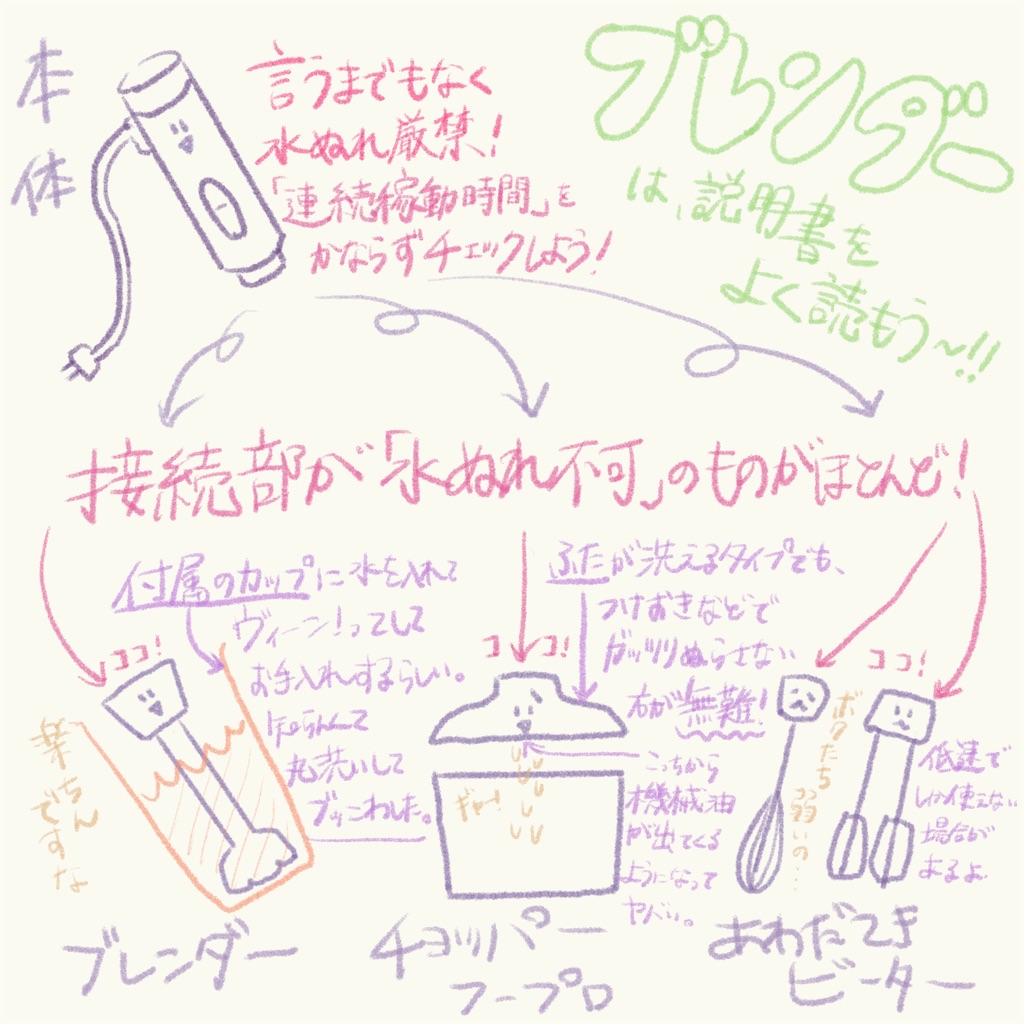 ブレンダー
は、説明書を
よく読もう〜!!
本体
言うまでもなく
水ぬれ厳禁!
「連続稼動時間」を
かならずチェックしよう!
接続部が「水ぬれ不可」のものがほとんど!
付属のカップに水を入れて
ヴィーン!ってして
お手入れするらしい。
知らんくて
丸洗いして
ブッこわした。
ココ!
楽ちん
ですな
ブレンダー
ふたが洗えるタイプでも、
つけおきなどで
ガッツリぬらさない
方が無難!
ココ!
ギャー!
こっちから
機械油
が出てくる
ようになって
ヤバい。
チョッパー
フープロ
ココ!
ボクたち
弱いの…
低速で
しか使えない
場合が
あるよ
あわだてき
ビーター